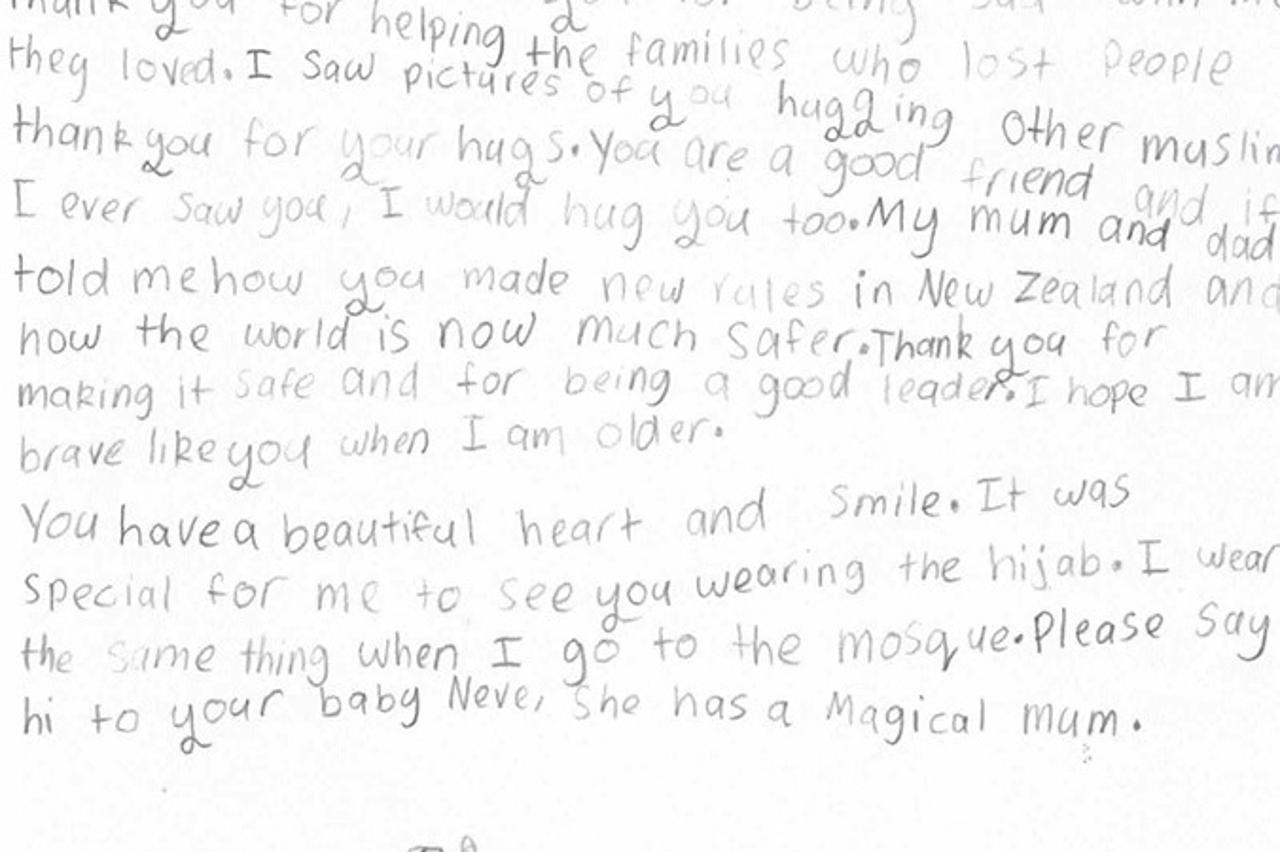 thank you for helping the families who lost people
they loved. I saw pictures of you hugging other muslim
thank you for your hugs. You are a good friend and if
I ever saw you, I would hug you too. My mum and dad
told me how you made new rules in New Zealand and
how the world is now much safer. Thank you for
making it safe and for being a good leader. I hope I am
brave like you when I am older.
You have a beautiful heart and smile. It was
special for me to see you wearing the hijab. I wear
the same thing when I go to the mosque. Please say
hi to your baby Neve, she has a Magical mum.